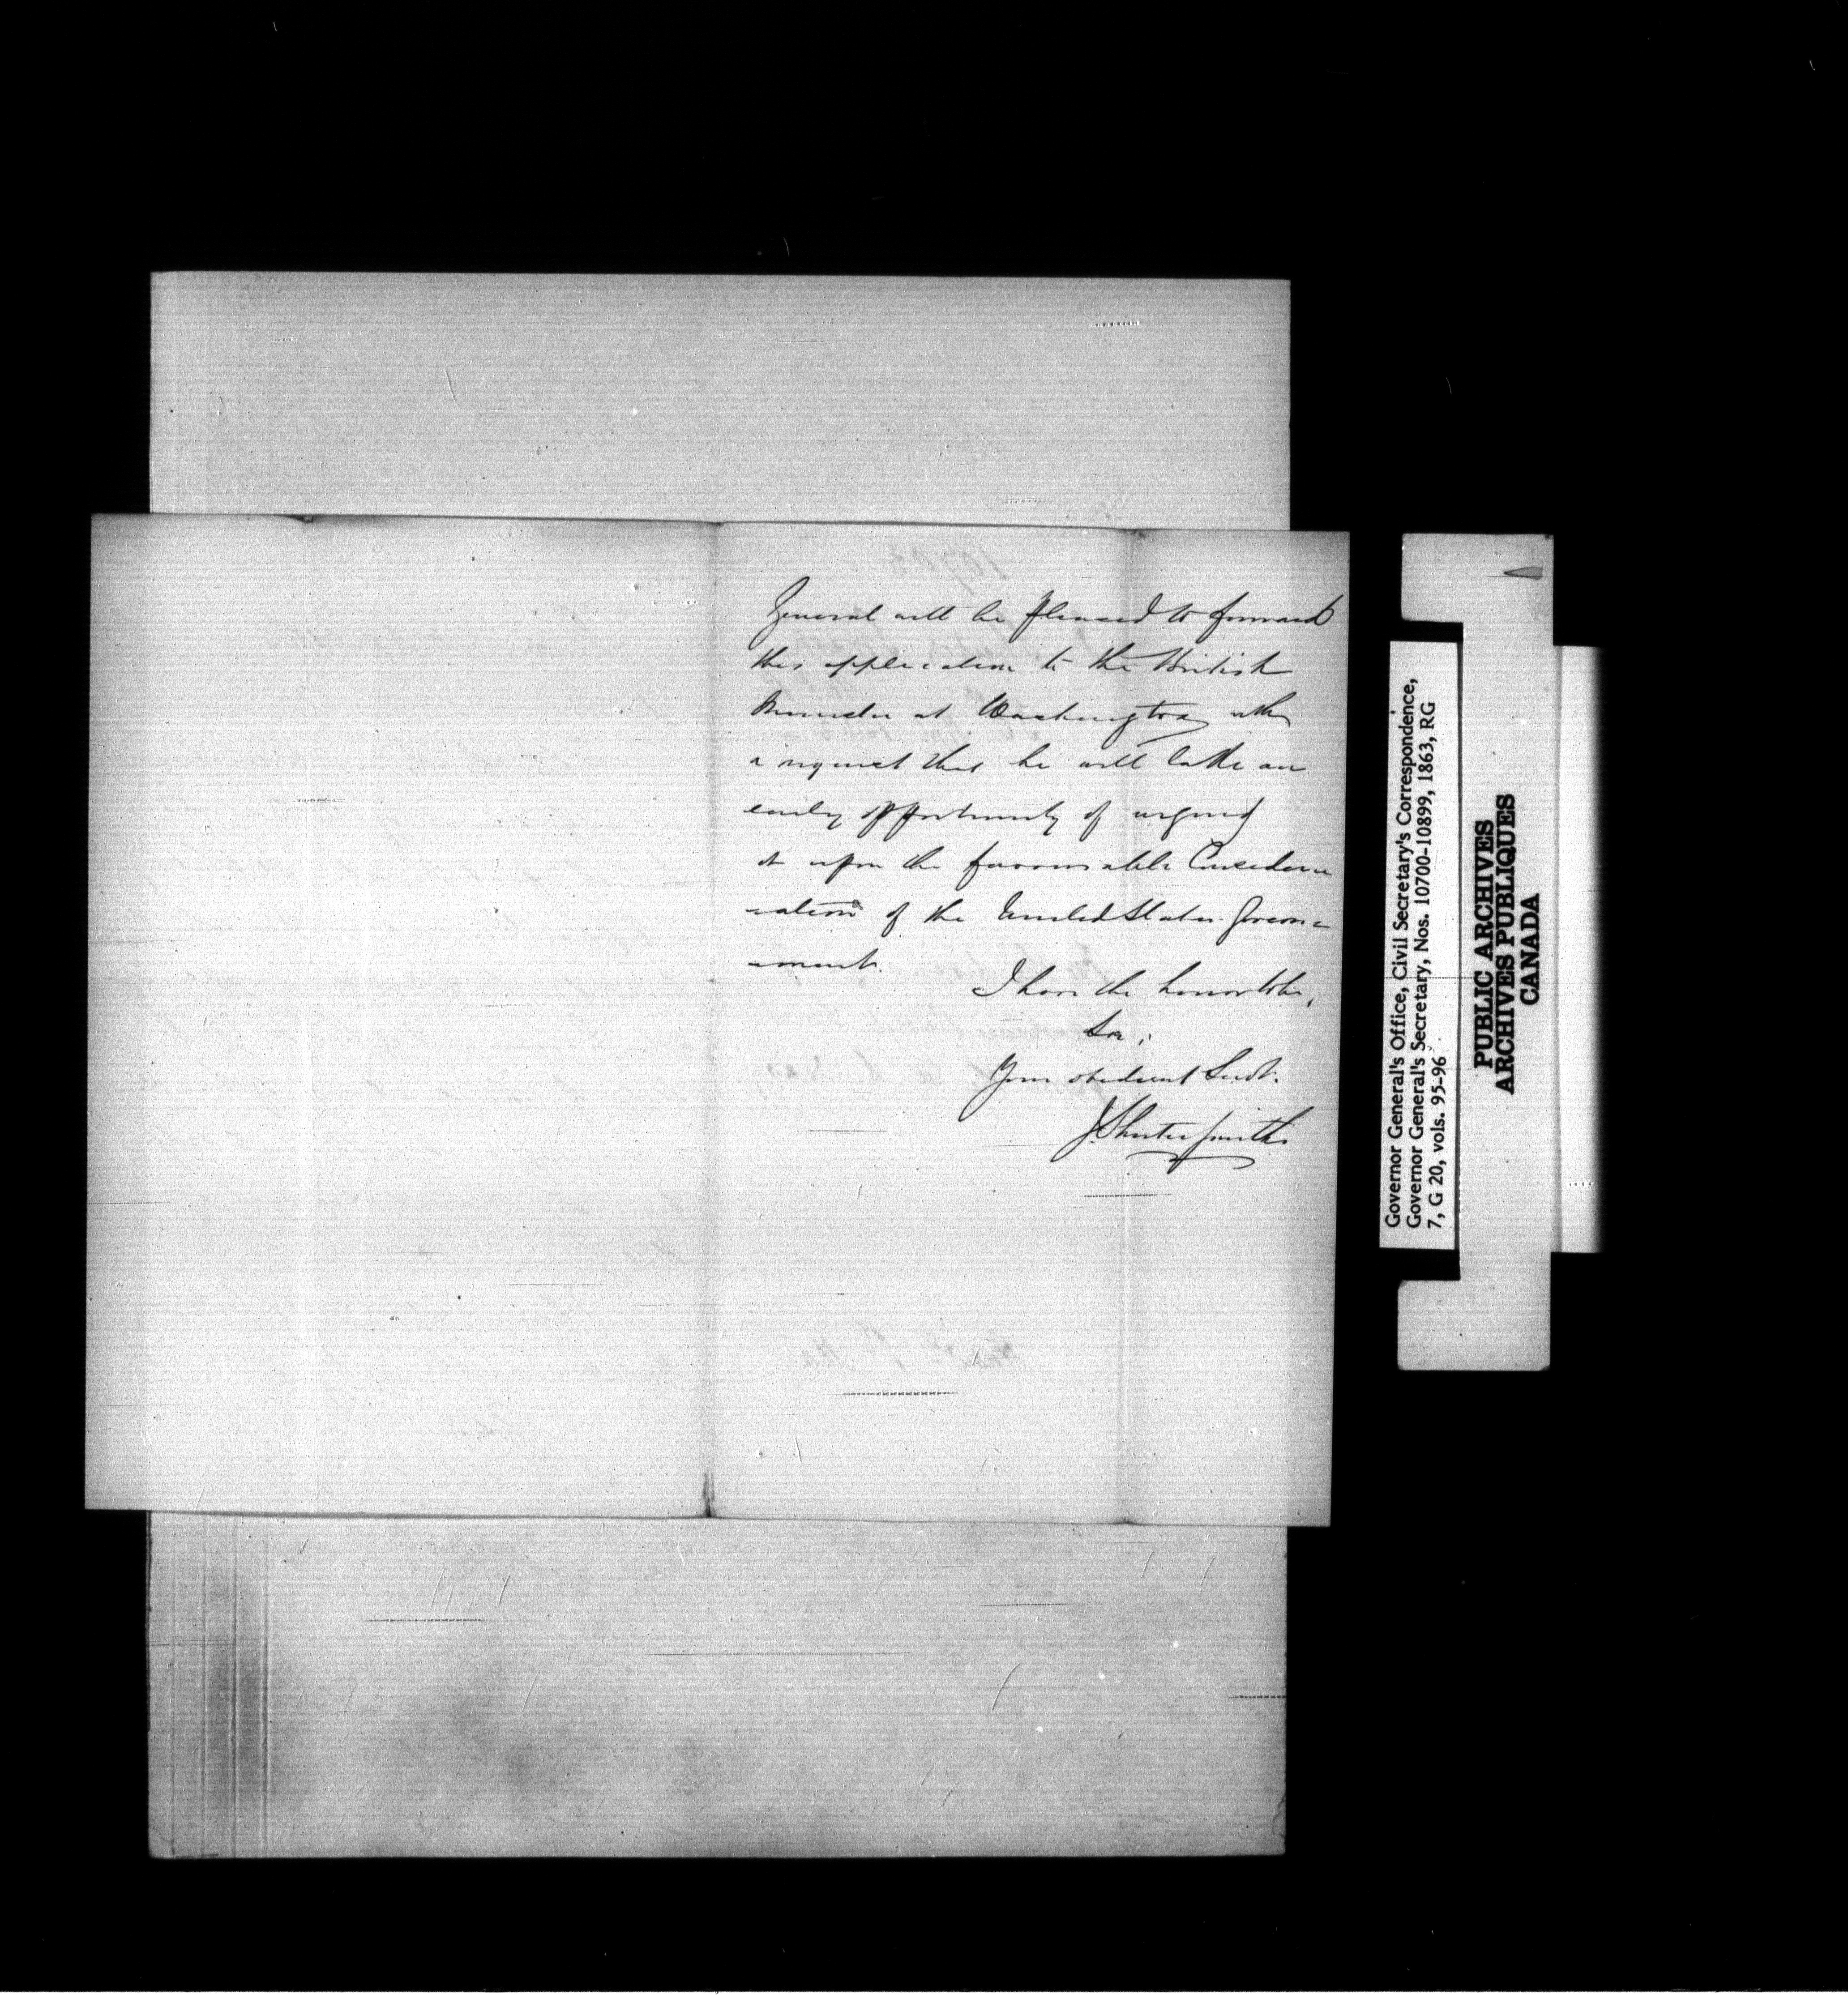 General will be pleased to forward
this application to the British
Minister at Washington with
a request that he will take an
early opportunity of urging
it upon the favourable Consider=
=ation of the United States Govern=
=ment.
I have the honor to be,
Sir,
Your obedient Servt.
J. Shuter Smith
Governor General's Office, Civil Secretary's Correspondence,
Governor General's Secretary, Nos. 10700-10899, 1863, RG
7, G 20, vols. 95-96
PUBLIC ARCHIVES
ARCHIVES PUBLIQUES
CANADA